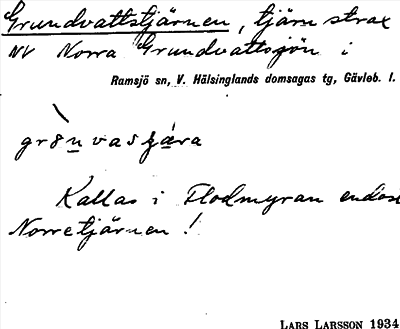 Grundvattstjärnen, tjärn strax
NV Norra Grundvattssjön i
Ramsjö sn, V. Hälsinglands domsagas tg, Gävleb. l.
Kallas i Flodmyran endast
Norretjärnen!
LARS LARSSON 1934